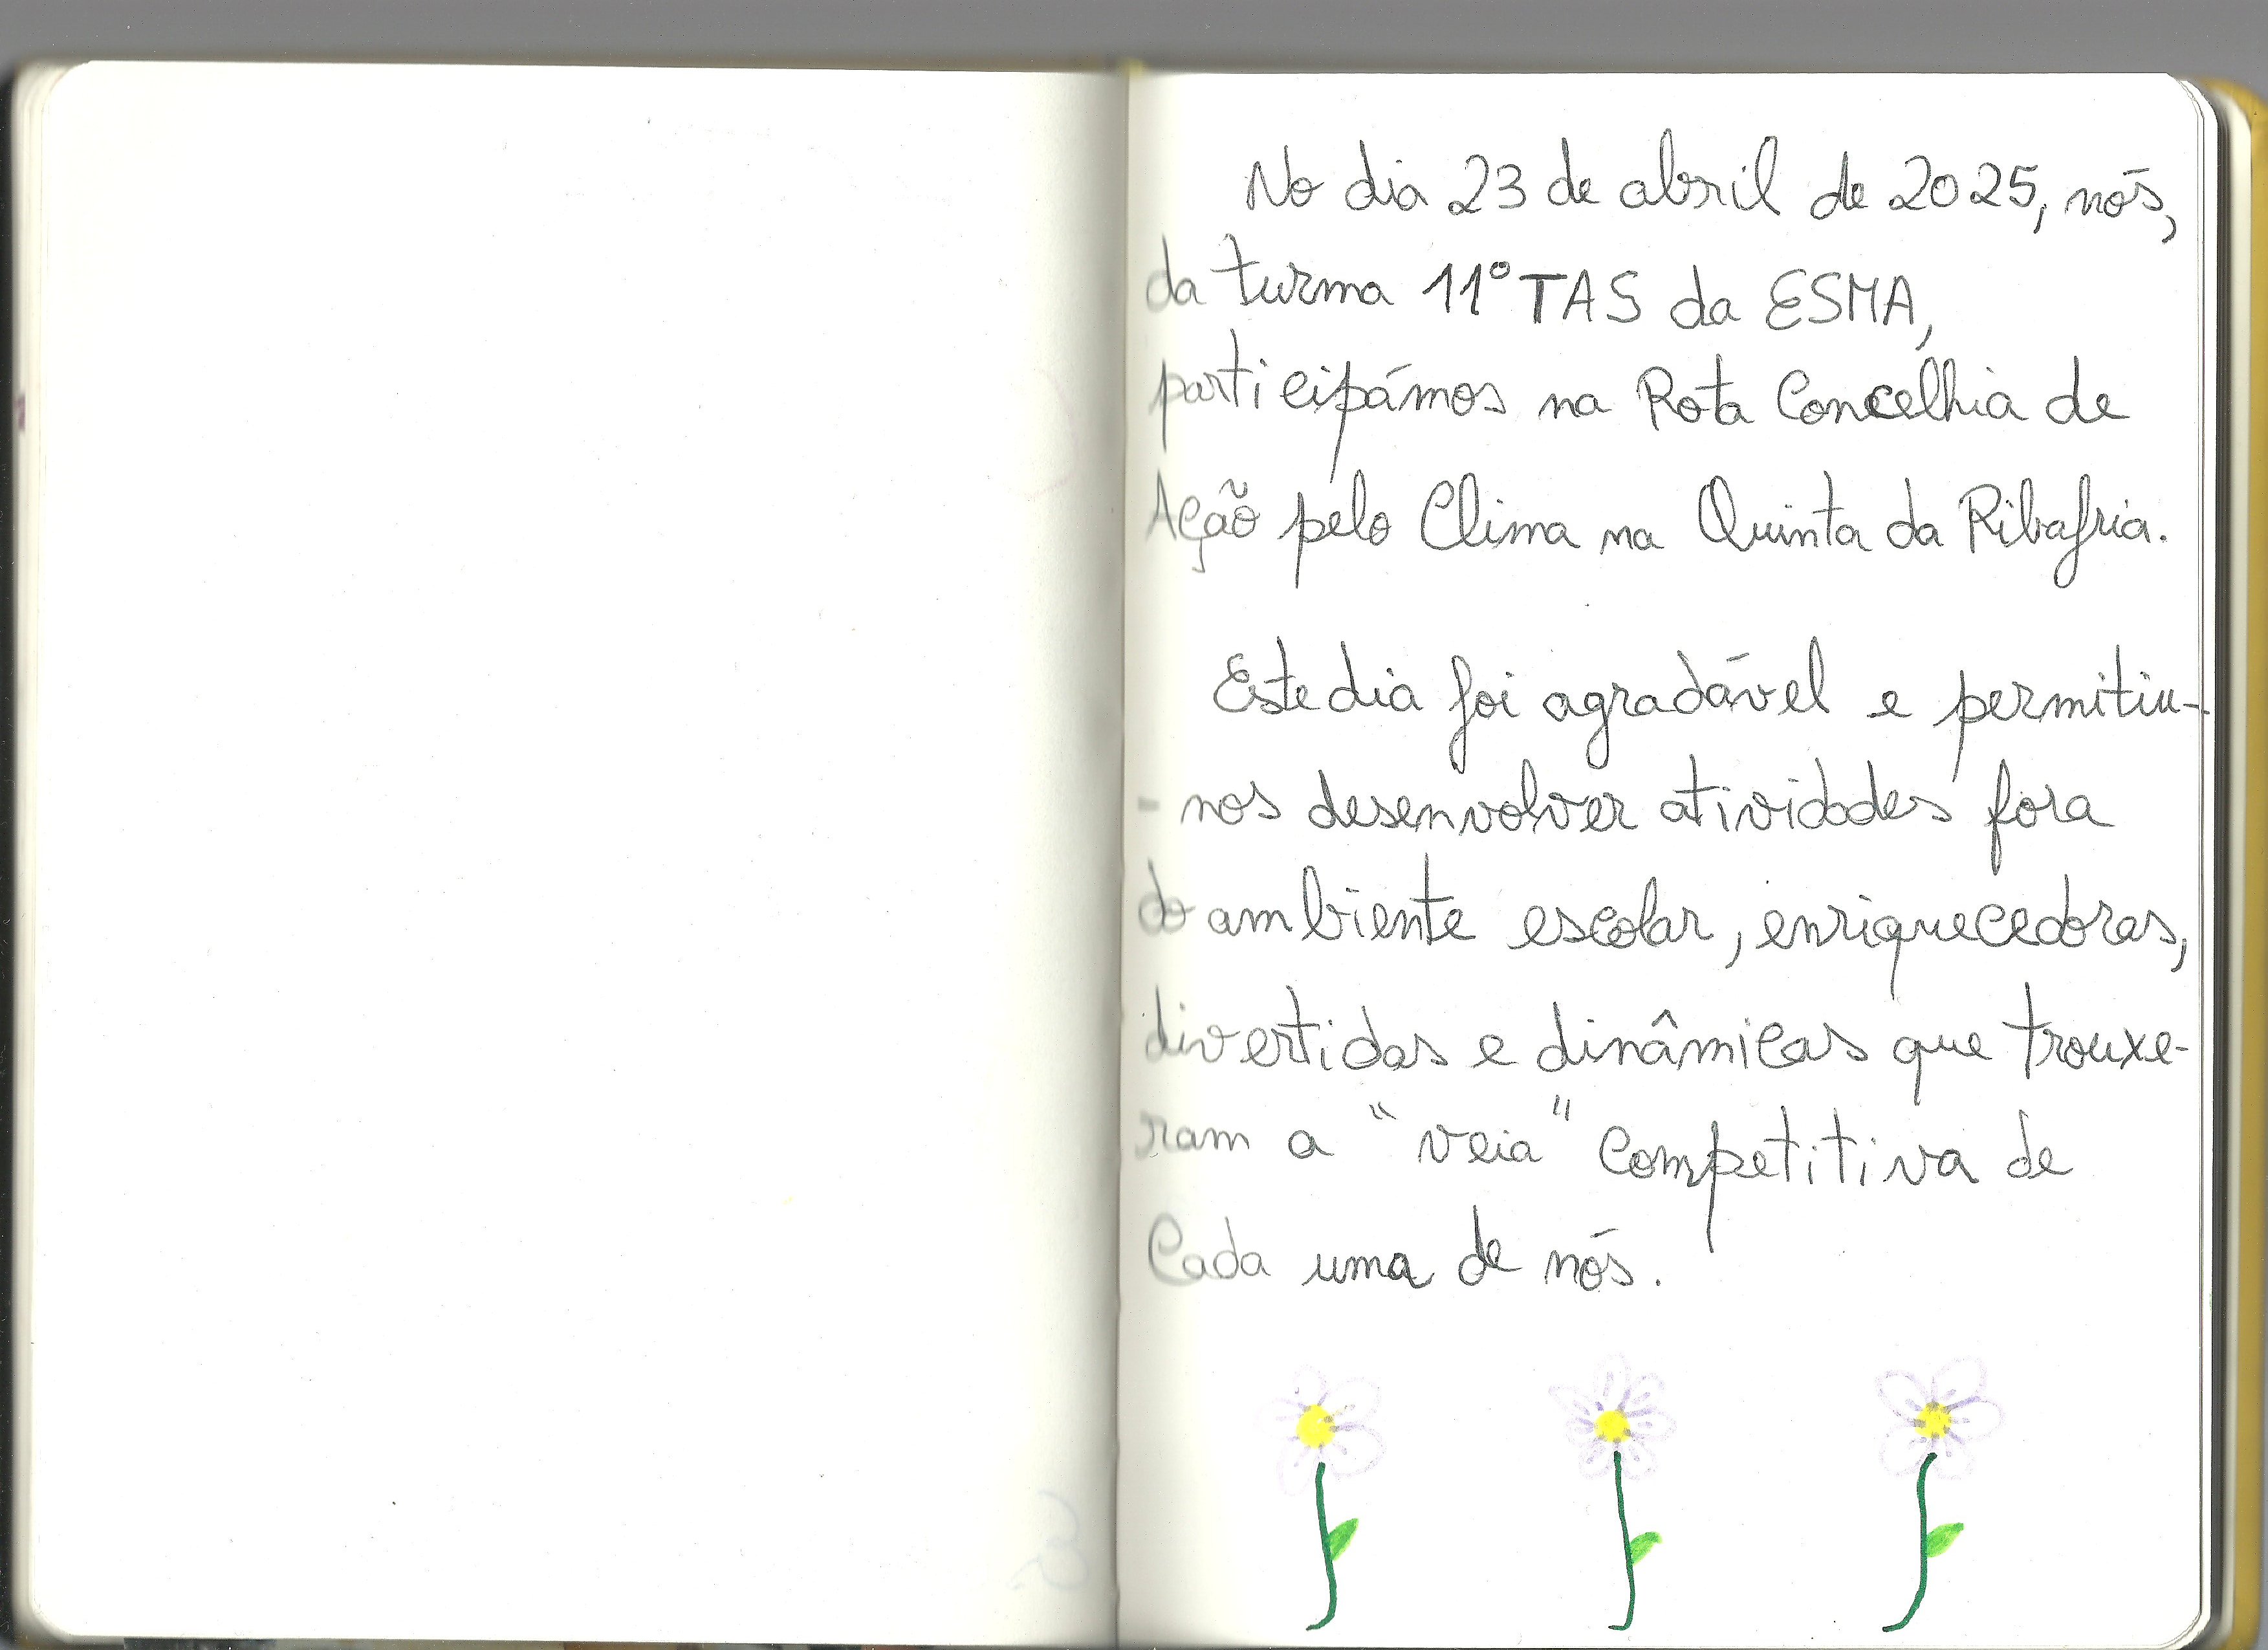 No dia 23 de abril de 2025, nós,
da turma 11º TAS da ESMA,
participámos na Rota Concelhia de
Ação pelo Clima na Quinta da Ribafria.
Este dia foi agradável e permitiu-
-nos desenvolver atividades fora
do ambiente escolar, enriquecedoras,
divertidas e dinâmicas que trouxe-
ram a "veia" competitiva de
Cada uma de nós.